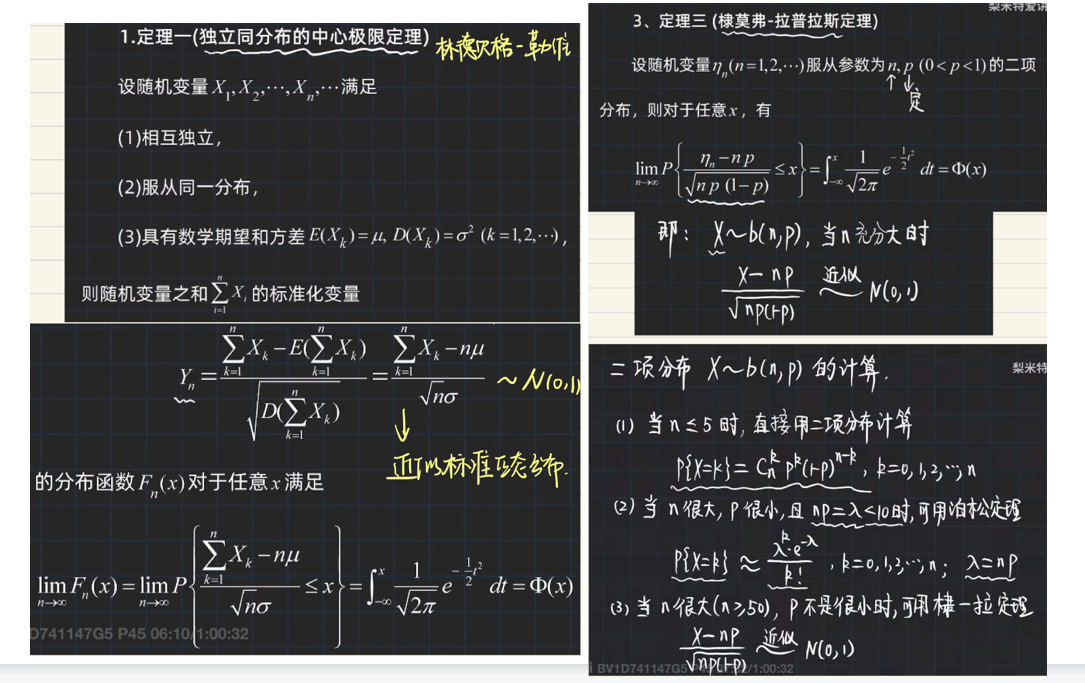 1.定理一(独立同分布的中心极限定理) 林德贝格-勒维
设随机变量 X₁,X₂,⋯,Xₙ,⋯满足
(1)相互独立，
(2)服从同一分布，
(3)具有数学期望和方差 E(X_k)=μ, D(X_k)=σ² (k=1,2,⋯)，
则随机变量之和 \sum_{i=1}^{n} X_i 的标准化变量
Y_n = \frac{\sum_{k=1}^{n} X_k - E(\sum_{k=1}^{n} X_k)}{\sqrt{D(\sum_{k=1}^{n} X_k)}} = \frac{\sum_{k=1}^{n} X_k - nμ}{\sqrt{n}σ} ~ N(0,1)
↓
近似标准正态分布.
的分布函数 F_n(x) 对于任意 x 满足
\lim_{n→∞} F_n(x) = \lim_{n→∞} P\{ \frac{\sum_{k=1}^{n} X_k - nμ}{\sqrt{n}σ} ≤ x \} = \int_{-∞}^{x} \frac{1}{\sqrt{2π}} e^{-\frac{1}{2}t²} dt = Φ(x)
D741147G5 P45 06:10/1:00:32
梨米特爱讲
3、定理三 (棣莫弗-拉普拉斯定理)
设随机变量 η_n (n=1,2,⋯) 服从参数为 n, p (0<p<1) 的二项
↑ ↓
定
分布，则对于任意 x，有
\lim_{n→∞} P\{ \frac{η_n - n p}{\sqrt{n p (1-p)}} ≤ x \} = \int_{-∞}^{x} \frac{1}{\sqrt{2π}} e^{-\frac{1}{2}t²} dt = Φ(x)
即: X~b(n,p), 当n充分大时
\frac{X-np}{\sqrt{np(1-p)}} 近似~ N(0,1)
梨米特
二项分布 X~b(n,p) 的计算.
(1) 当 n≤5 时, 直接用二项分布计算
P{X=k} = C_n^k p^k (1-p)^{n-k}, k=0,1,2,⋯,n
(2) 当 n 很大, P 很小, 且 np=λ<10时, 可用泊松定理
P{X=k} ≈ \frac{λ^k·e^{-λ}}{k!}, k=0,1,2,⋯,n; λ=np
(3) 当 n 很大(n≥50), P 不是很小时, 可用棣-拉定理
\frac{X-np}{\sqrt{np(1-p)}} 近似~ N(0,1)
BV1D741147G5 P45 /1:00:32